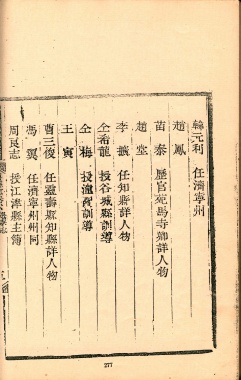 韓元利 任濟寧州
趙鳳
苗泰 歷官苑馬寺卿詳人物
趙堂
李 任知縣詳人物
仝希龍 授谷城縣訓導
仝梅 授 訓導
王寅
曹三俊 任靈壽縣知縣詳人物
馮翼 任濟寧州州同
周良志 授江津縣主簿
277